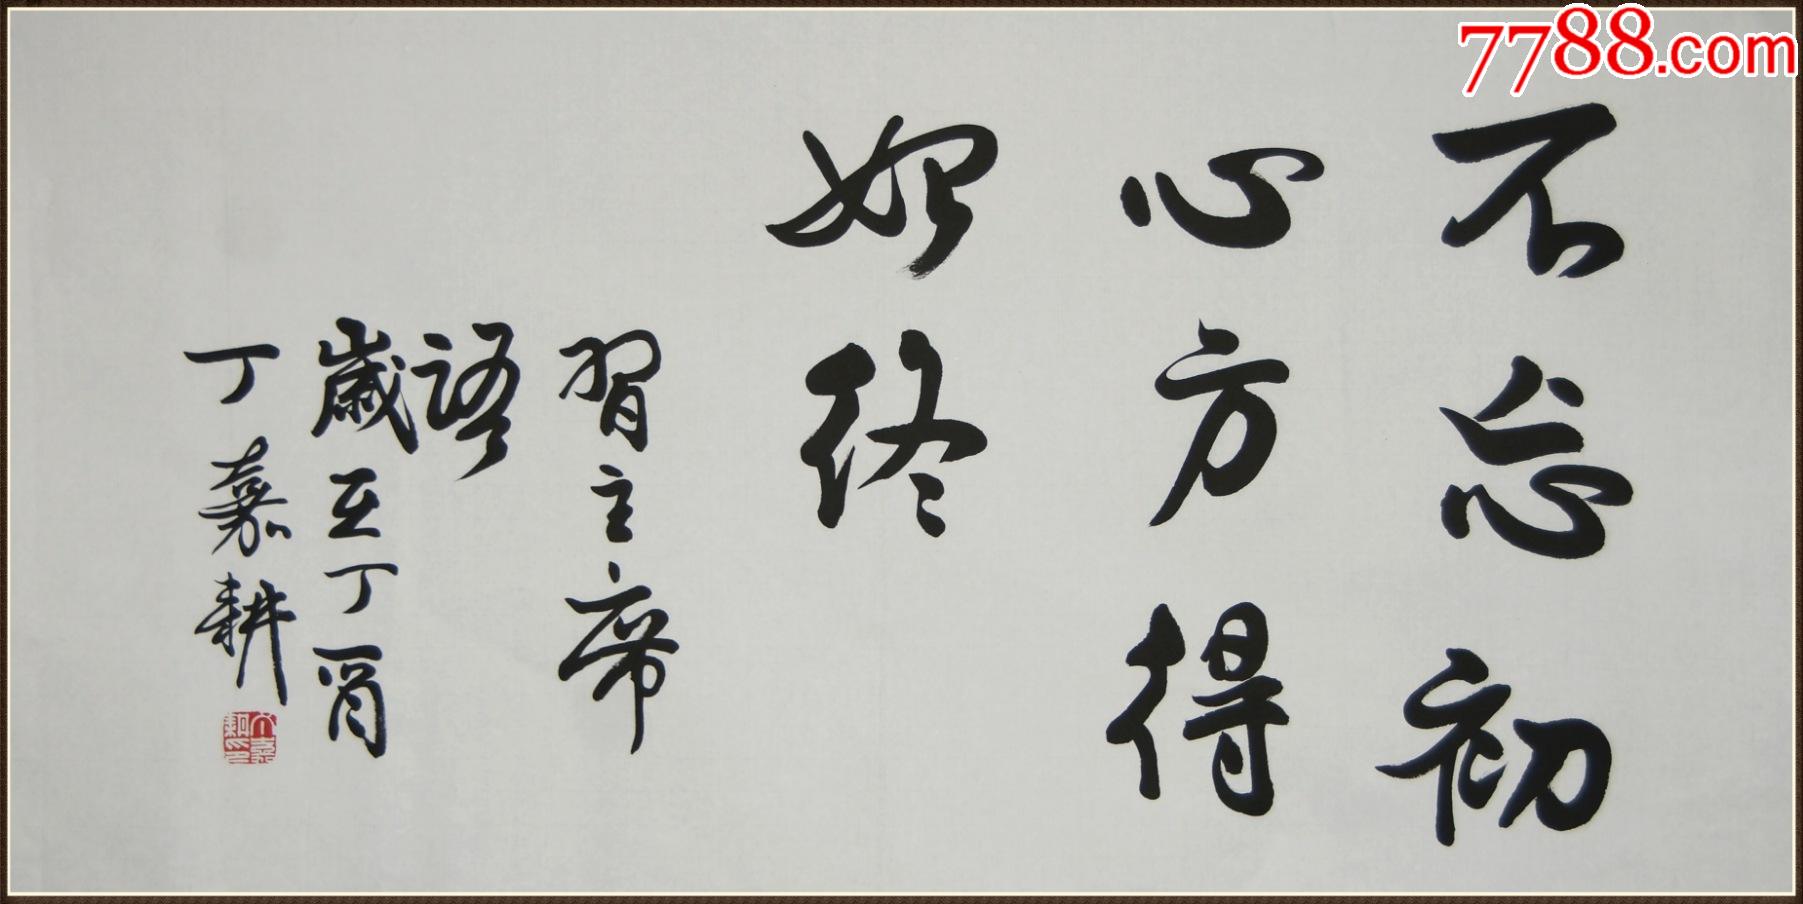 7788.com
不忘初
心方得
始终
习主席
语
歲至丁酉
丁嘉耕